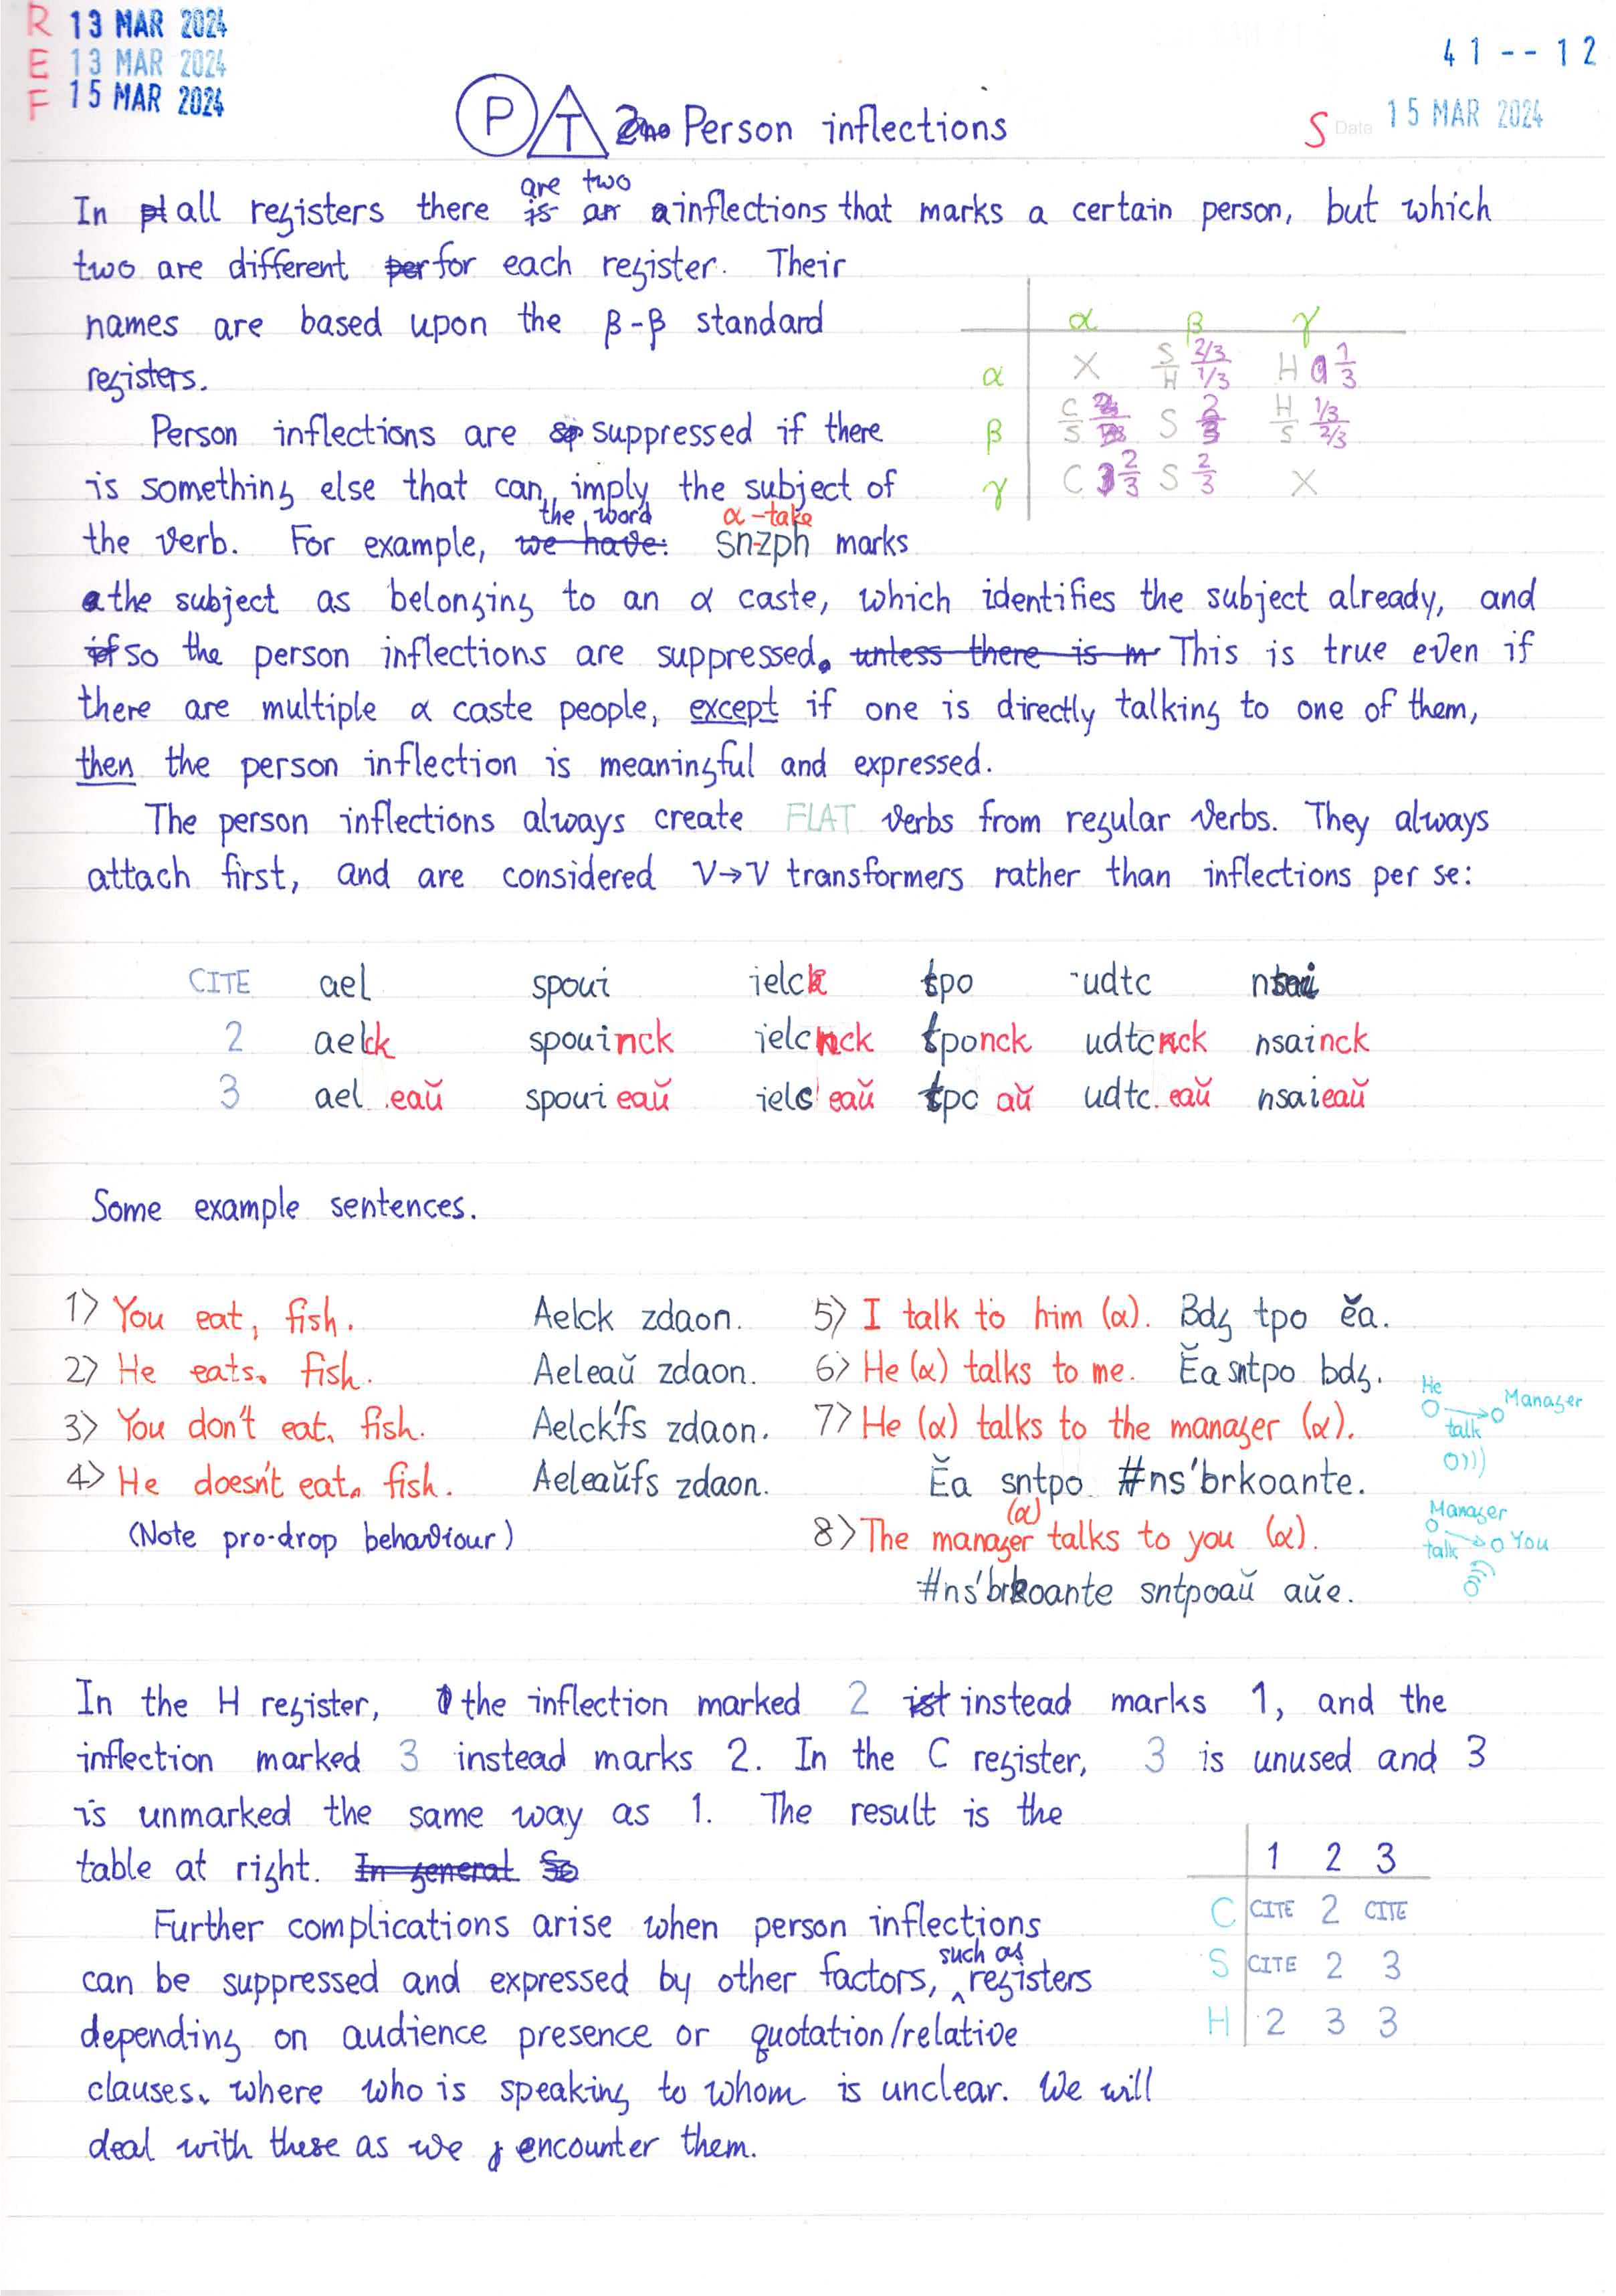 R 13 MAR 2024
E 13 MAR 2024
F 15 MAR 2024
41 -- 12
P T Person inflections
S Date 15 MAR 2024
In all registers there are two inflections that marks a certain person, but which
two are different for each register. Their
names are based upon the β-β standard
registers.
α β γ
α X S/H 2/3 1/3 H 1/3
β C/S S 2/3 H/S 1/3 2/3
γ C 2/3 S 2/3 X
Person inflections are suppressed if there
is something else that can imply the subject of
the verb. For example, the word snzph marks
α-take
the subject as belonging to an α caste, which identifies the subject already, and
so the person inflections are suppressed. This is true even if
there are multiple α caste people, except if one is directly talking to one of them,
then the person inflection is meaningful and expressed.
The person inflections always create FLAT verbs from regular verbs. They always
attach first, and are considered V→V transformers rather than inflections per se:
CITE ael spoui ielck tpo udtc nsai
2 aelck spouinck ielcnck tponck udtcnck nsainck
3 ael eaŭ spoui eaŭ ielc'eaŭ tpo aŭ udtc eaŭ nsaieaŭ
Some example sentences.
1) You eat, fish. Aelck zdaon.
2) He eats, fish. Aeleaŭ zdaon.
3) You don't eat, fish. Aelck'fs zdaon.
4) He doesn't eat, fish. Aeleaŭfs zdaon.
(Note pro-drop behaviour)
5) I talk to him (α). Bdg tpo ĕa.
6) He (α) talks to me. Ĕa sntpo bdg.
7) He (α) talks to the manager (α).
Ĕa sntpo #ns'brkoante.
He talk Manager
8) The manager (α) talks to you (α).
#ns'brkoante sntpoaŭ aŭe.
Manager talk You
In the H register, the inflection marked 2 instead marks 1, and the
inflection marked 3 instead marks 2. In the C register, 3 is unused and 3
is unmarked the same way as 1. The result is the
table at right.
1 2 3
C CITE 2 CITE
S CITE 2 3
H 2 3 3
Further complications arise when person inflections
can be suppressed and expressed by other factors, such as registers
depending on audience presence or quotation/relative
clauses, where who is speaking to whom is unclear. We will
deal with these as we encounter them.